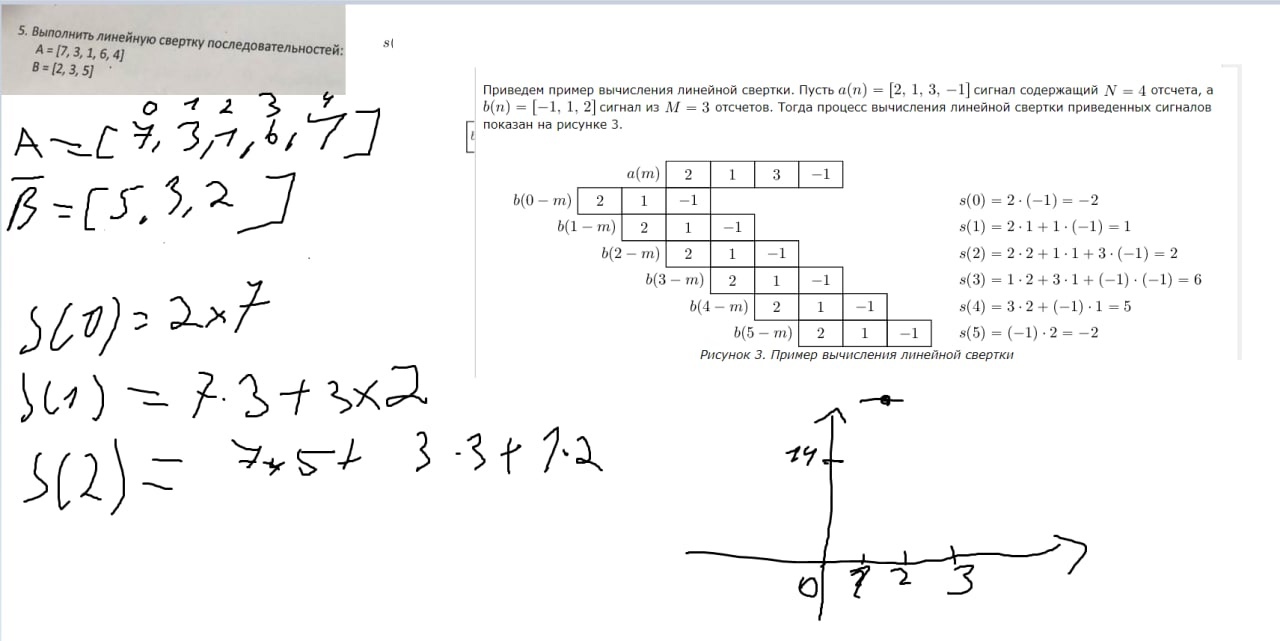 5. Выполнить линейную свертку последовательностей:
A = [7, 3, 1, 6, 4]
B = [2, 3, 5]
s(
Приведем пример вычисления линейной свертки. Пусть a(n) = [2, 1, 3, −1] сигнал содержащий N = 4 отсчета, а
b(n) = [−1, 1, 2] сигнал из M = 3 отсчетов. Тогда процесс вычисления линейной свертки приведенных сигналов
показан на рисунке 3.
a(m) 2 1 3 −1
b(0 − m) 2 1 −1 s(0) = 2 · (−1) = −2
b(1 − m) 2 1 −1 s(1) = 2 · 1 + 1 · (−1) = 1
b(2 − m) 2 1 −1 s(2) = 2 · 2 + 1 · 1 + 3 · (−1) = 2
b(3 − m) 2 1 −1 s(3) = 1 · 2 + 3 · 1 + (−1) · (−1) = 6
b(4 − m) 2 1 −1 s(4) = 3 · 2 + (−1) · 1 = 5
b(5 − m) 2 1 −1 s(5) = (−1) · 2 = −2
Рисунок 3. Пример вычисления линейной свертки
0 1 2 3 4
A = [7, 3, 1, 6, 4]
B = [5, 3, 2]
S(0) = 2 × 7
S(1) = 7 · 3 + 3 × 2
S(2) = 7 × 5 + 3 · 3 + 1 · 2
14
0 1 2 3